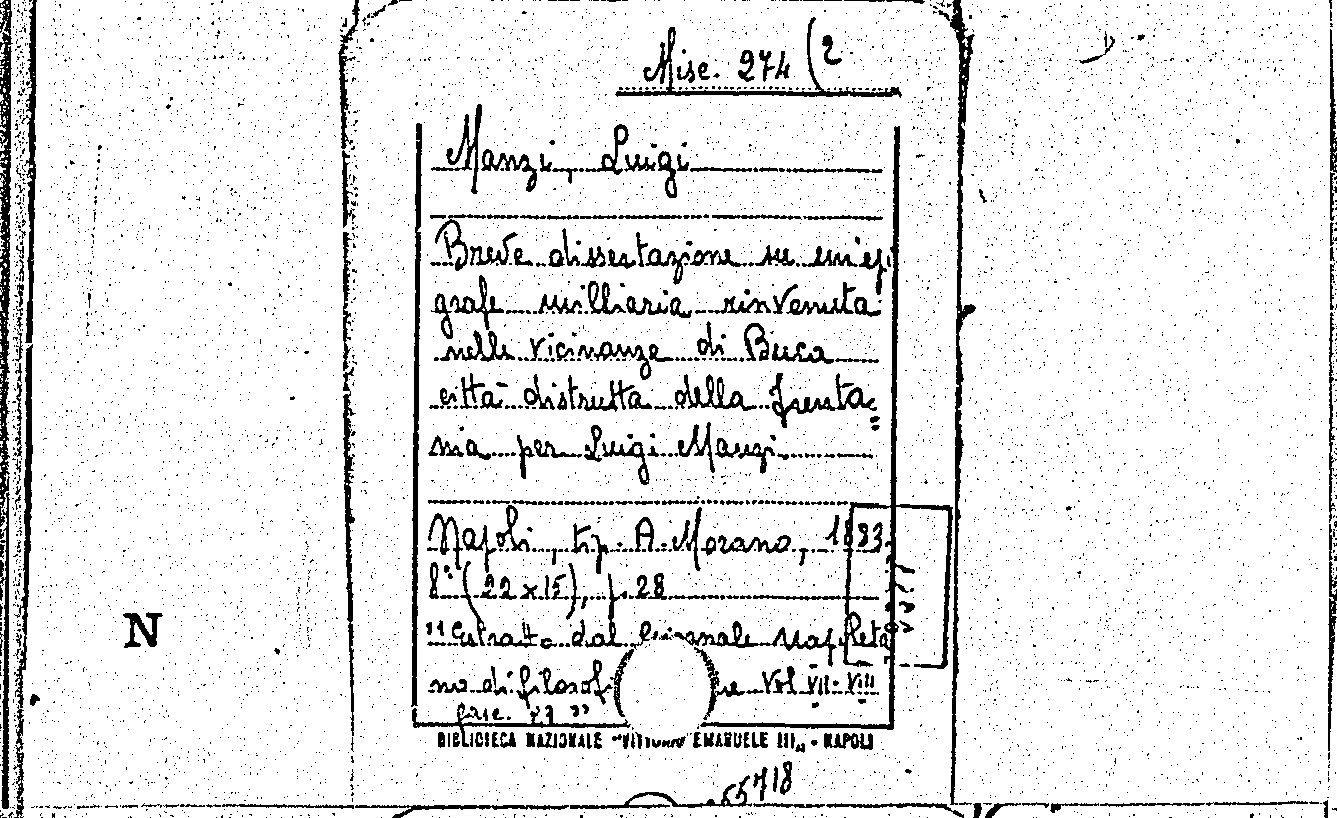 Misc. 274 (2
Manzi, Luigi
Breve dissertazione su un'epi
grafe milliaria rinvenuta
nelle vicinanze di Buca
città distrutta della Frenta-
nia per Luigi Manzi.
Napoli, tip. A. Morano, 1883.
8° (22 x 15), p. 28
"Estratto dal Giornale napoleta
no di filosof re Vol VII-VIII
fasc. "
BIBLIOTECA NAZIONALE "VITTORIO EMANUELE III" - NAPOLI
N